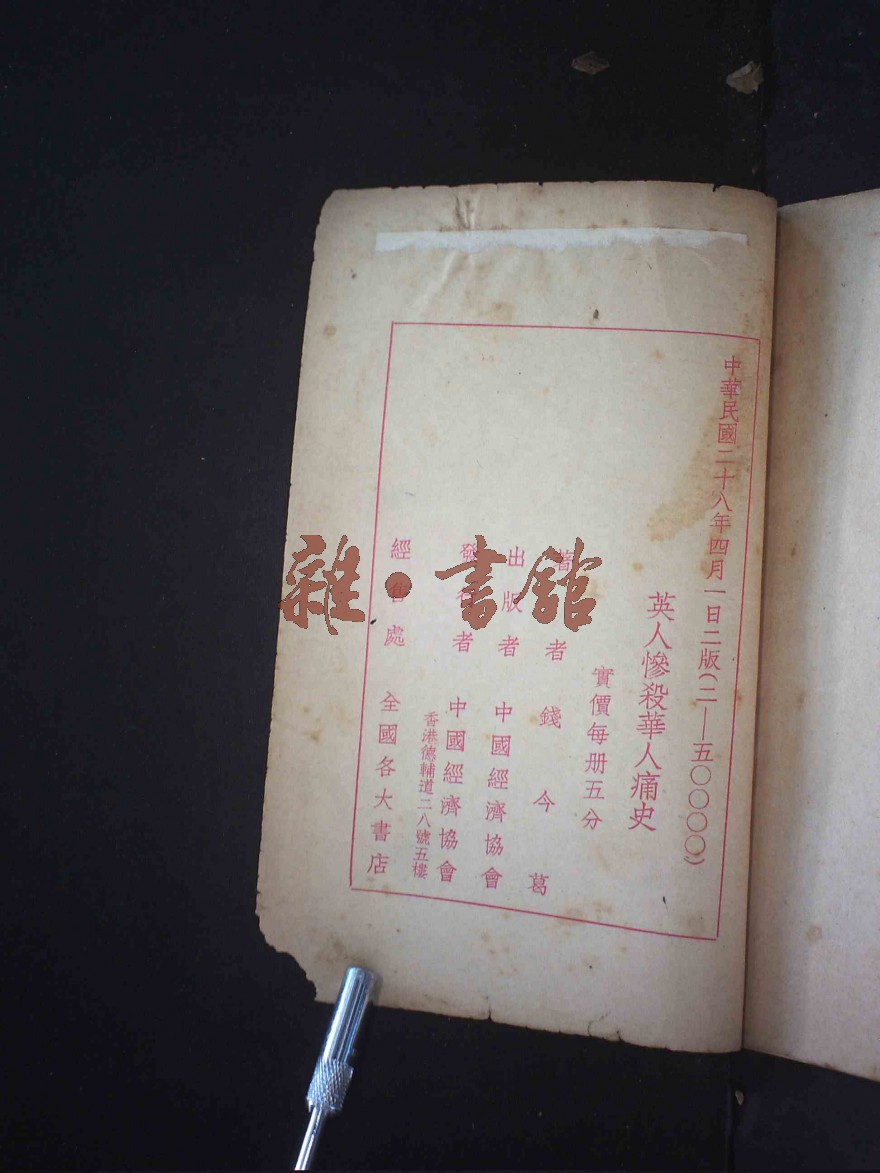 中華民國二十八年四月一日二版(二—五〇〇〇〇)
英人慘殺華人痛史
實價每册五分
著者 錢今葛
出版者 中國經濟協會
發行者 中國經濟協會
香港德輔道二八號五樓
經售處 全國各大書店
雜·書館